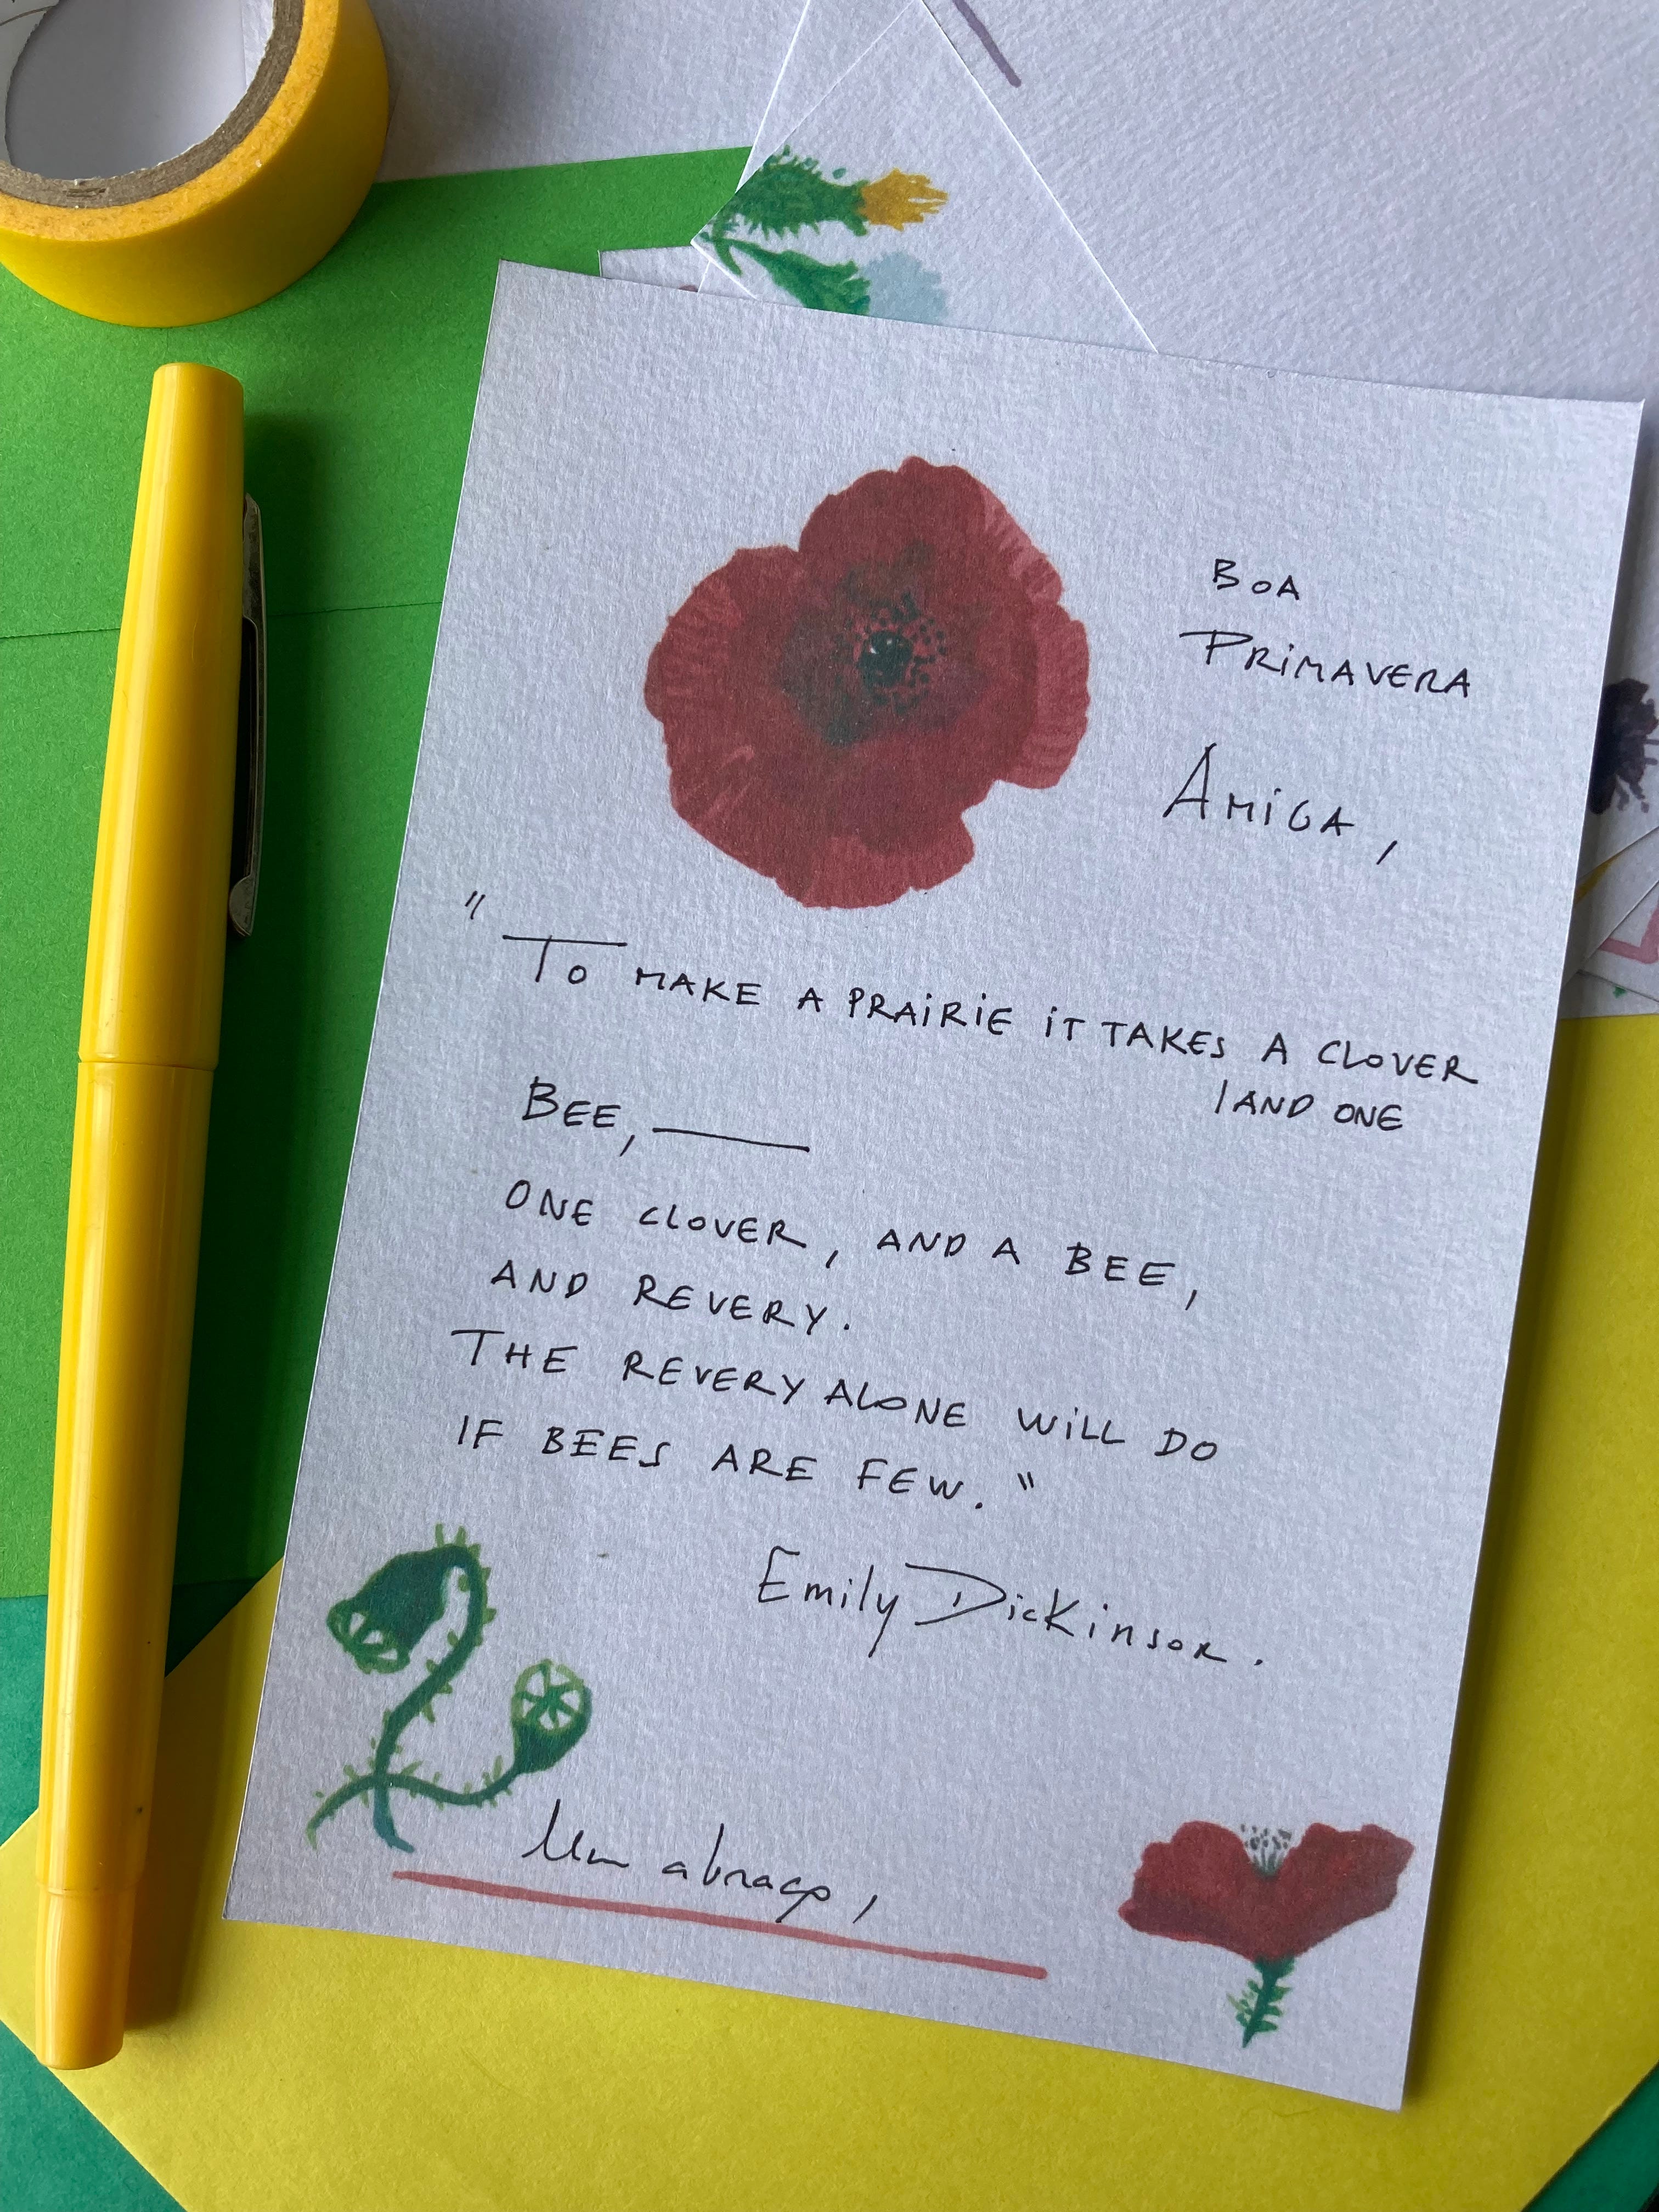 BOA
PRIMAVERA
AMIGA,
"TO MAKE A PRAIRIE IT TAKES A CLOVER
/AND ONE
BEE, —
ONE CLOVER, AND A BEE,
AND REVERY.
THE REVERY ALONE WILL DO
IF BEES ARE FEW."
Emily Dickinson.
Um abraço,